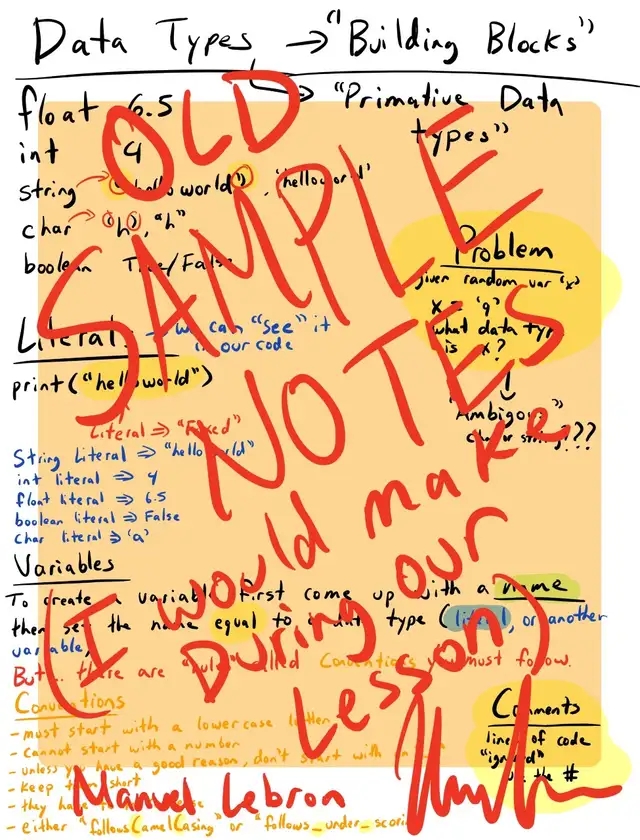 Data Types → "Building Blocks"
float 6.5
→ "Primative Data
types"
int 4
string "hello world", 'helloworld'
char "h", "h"
boolean True/False
Problem
given random var 'x'
x = 'g'
what data type
is x?
↓
"Ambigous"
char or string???
Literals → we can "see" it
in our code
print("helloworld")
Literal ⇒ "Fixed"
String Literal ⇒ "hello world"
int literal ⇒ 4
float literal ⇒ 6.5
boolean literal ⇒ False
Char literal ⇒ 'a'
Variables
To create a variable first come up with a name
then set the name equal to a data type (literal, or another
variable)
But.. there are "rules" called Conventions you must follow.
Conventions
- must start with a lowercase letter
- cannot start with a number
- unless you have a good reason, don't start with
- keep them short
- they have
- either "followsCamelCasing" or "follows_under_scoring
Comments
lines of code
"ignored"
use the #
OLD
SAMPLE
NOTES
(I would make
During our
Lesson)
Manuel Lebron